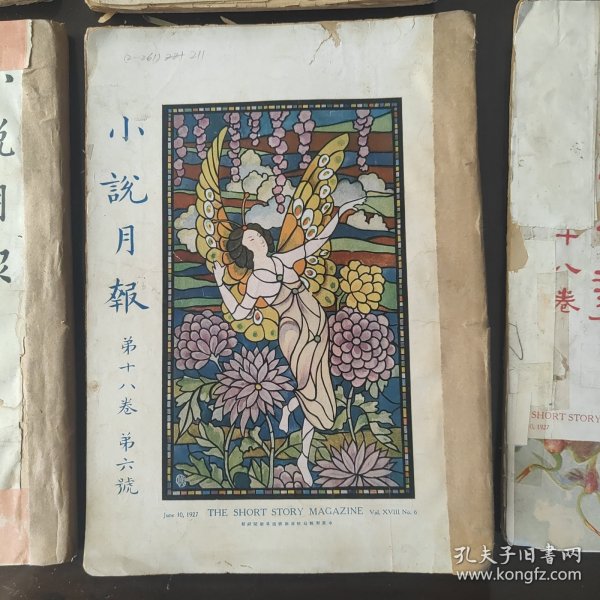 小說月報
第十八卷 第六號
June 10, 1927 THE SHORT STORY MAGAZINE Vol. XVIII No. 6
說月報
十八卷
SHORT STORY
0, 1927
孔夫子旧书网
www.kongfz.com